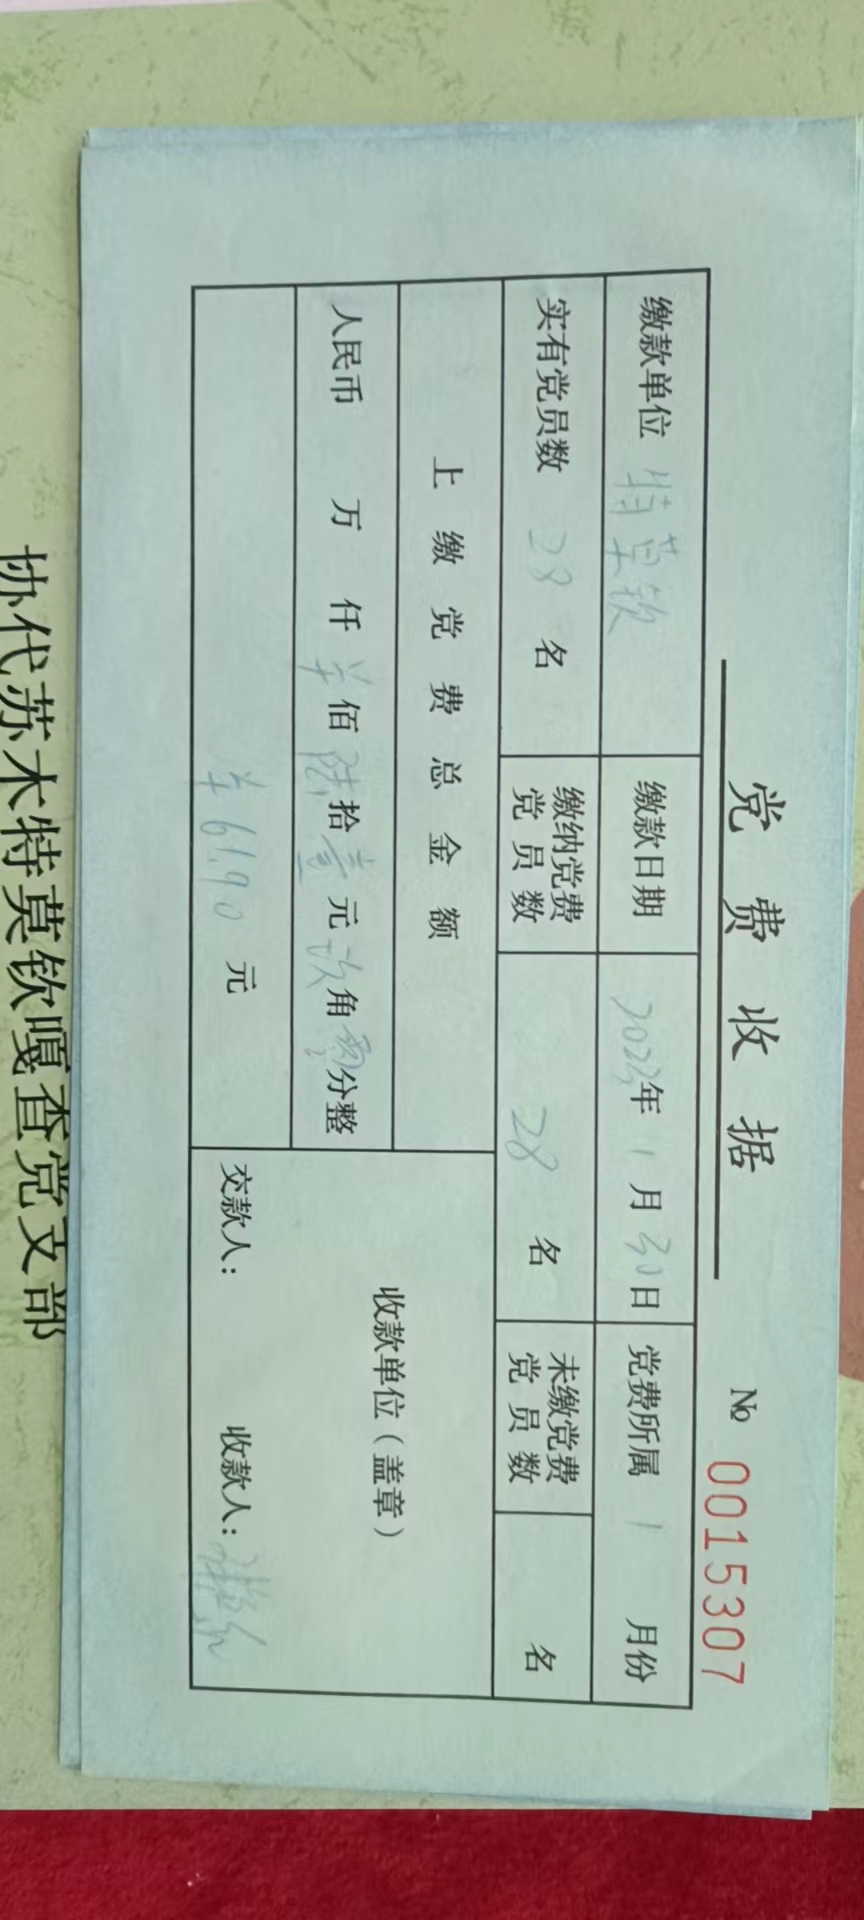 党费收据
№ 0015307
缴款单位 特莫钦 缴款日期 2023年1月30日 党费所属 1 月份
实有党员数 28 名 缴纳党费党员数 28 名 未缴党费党员数 名
上缴党费总金额
人民币 万 仟 羊佰 陆拾壹元玖角零分整
收款单位（盖章）
羊61.90 元
交款人： 收款人：
协代苏木特莫钦嘎查党支部